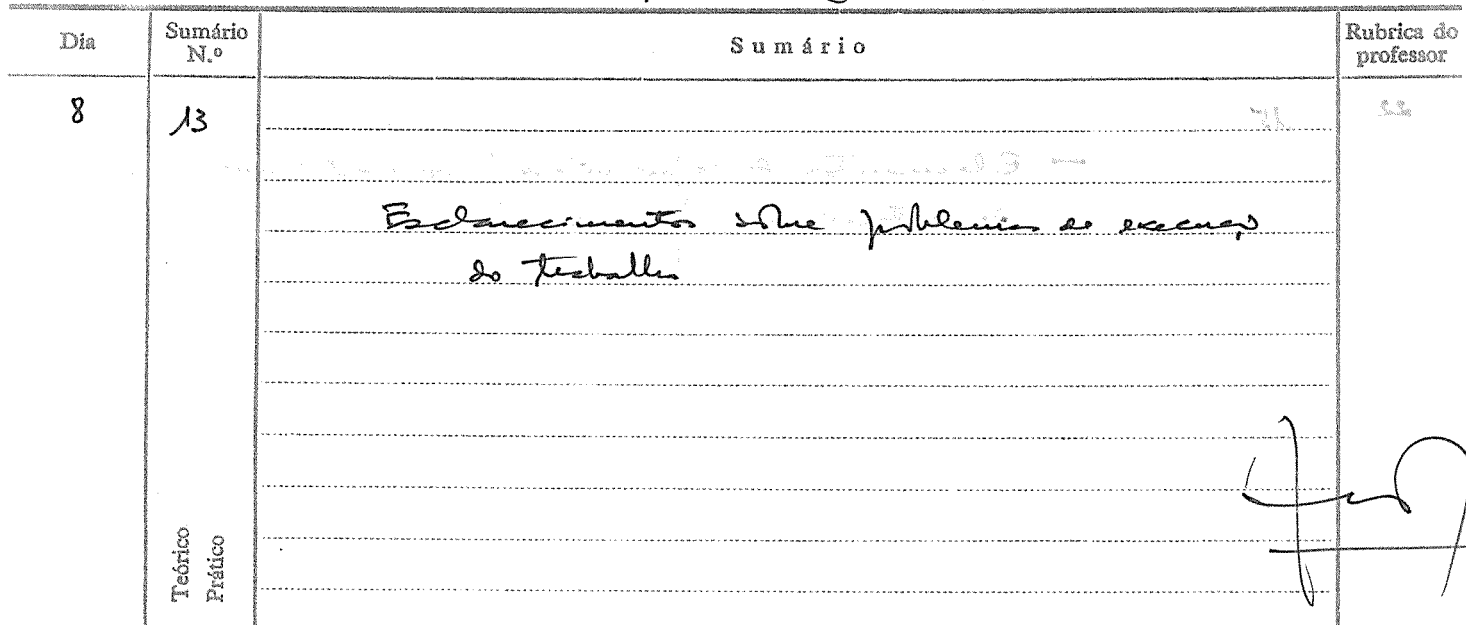 Dia
Sumário N.º
Sumário
Rubrica do professor
8
13
Esclarecimentos sobre problemas de execução
do trabalho
Teórico
Prático